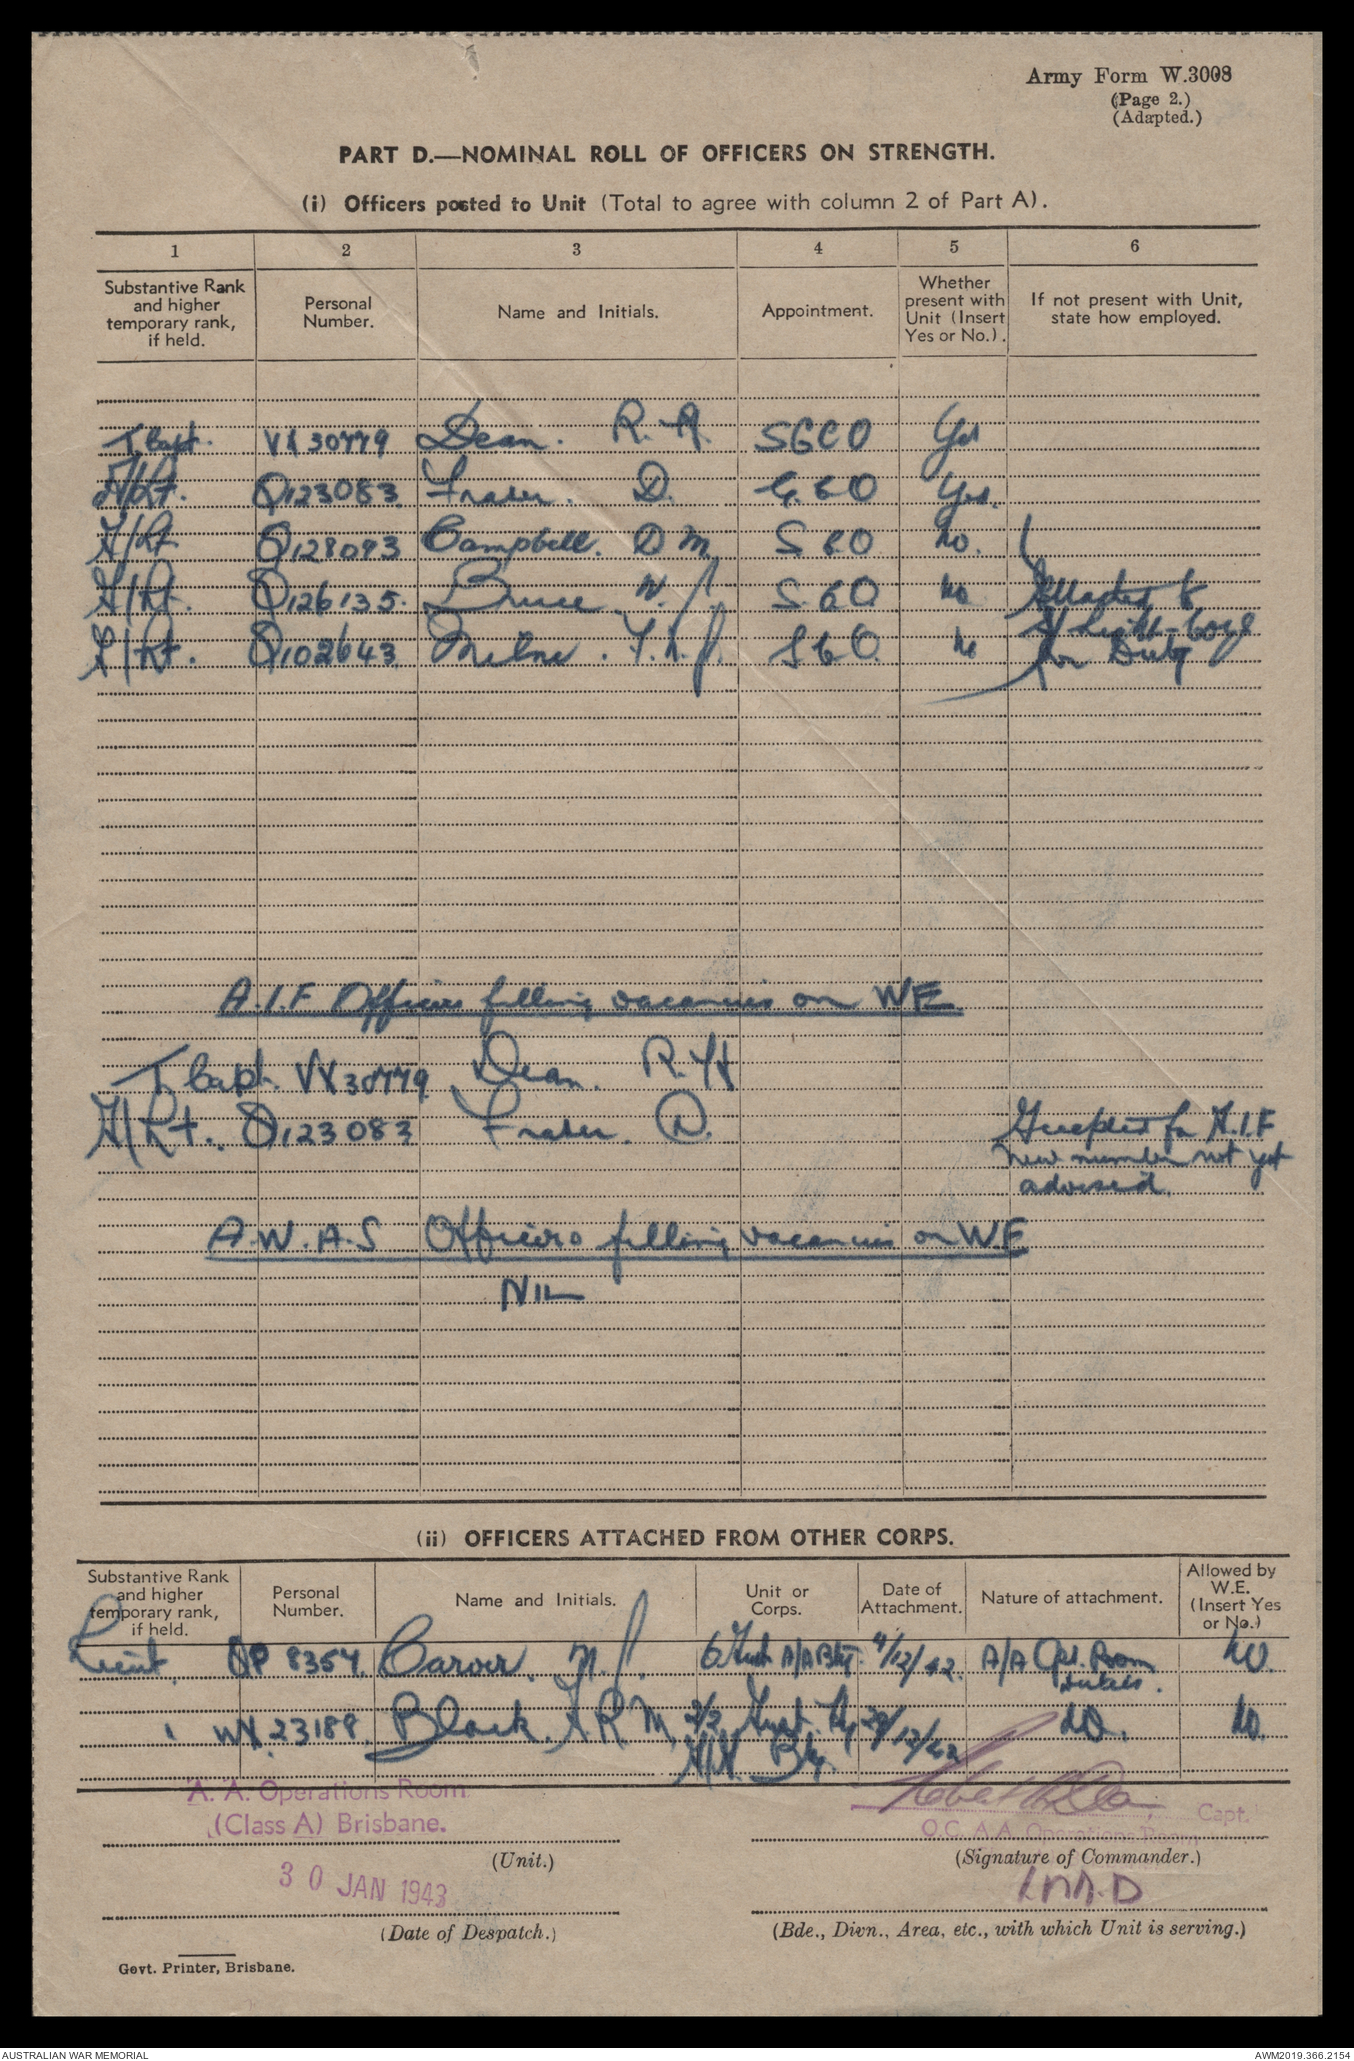 Army Form W.3008
(Page 2.)
(Adapted.)
PART D.—NOMINAL ROLL OF OFFICERS ON STRENGTH.
(i) Officers posted to Unit (Total to agree with column 2 of Part A).
1 2 3 4 5 6
Substantive Rank and higher temporary rank, if held. Personal Number. Name and Initials. Appointment. Whether present with Unit (Insert Yes or No.). If not present with Unit, state how employed.
T/Capt. VX30779 Dean. R. A. SGCO Yes
A/Lt. Q123083 Fraser. D. G.C.O Yes.
A/Lt Q128093 Campbell. D M. S C O No.
A/Lt. Q126135. Bruce. W. J. S. C O. No Attached to
A/Lt. Q102643 Milne. J. S C O. No for Duty
A.I.F Officers filling vacancies on WE.
T Capt. VX30779 Dean. R.
A/Lt. Q123083 Fraser. D. Accepted for A.I.F
new number not yet
advised.
A.W.A.S Officers filling vacancies on W.E
NIL
(ii) OFFICERS ATTACHED FROM OTHER CORPS.
Substantive Rank and higher temporary rank, if held. Personal Number. Name and Initials. Unit or Corps. Date of Attachment. Nature of attachment. Allowed by W.E. (Insert Yes or No.)
Lieut. QP 8354. Carver. N. J. 6 Aust A/A Bty 4/12/42. A/A Ops. Room No.
Duties.
" WX.23189. Black. A R M. 2/2 Aust. Hy 29/12/42 DO. No.
A/A. Bty.
A. A. Operations Room
(Class A) Brisbane.
Capt.
O.C. A.A. Operations Room
(Unit.) (Signature of Commander.)
30 JAN 1943
(Date of Despatch.) (Bde., Divn., Area, etc., with which Unit is serving.)
Govt. Printer, Brisbane.
AUSTRALIAN WAR MEMORIAL AWM2019.366.2154